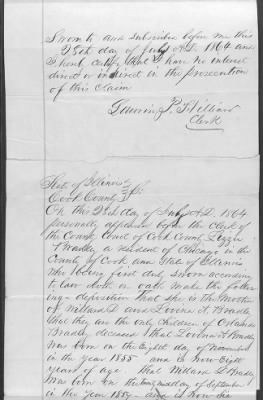 Sworn to and subscribed before me this
25th day of July A.D. 1864 and
I hereby certify that I have no interest
direct or indirect in the prosecution
of this claim
P. Hilliard
Clerk
State of Illinois
Cook County SS.
On this 25th day of July A.D. 1864
personally appeared before the Clerk of
the County Court of Cook County Lizzie
Bradley a resident of Chicago in the
County of Cook and State of Illinois
who being first duly sworn according
to law doth on oath make the follow
ing deposition that she is the Mother
of Willard D. and Lovina A. Bradley
that they are the only Children of
Bradley deceased that Lovina A. Bradley
was born on the Eight day of November
in the year 1855 and is now Eight
years of age that Willard D. Bradley
was born on the day of September
in the year 1859 and is now